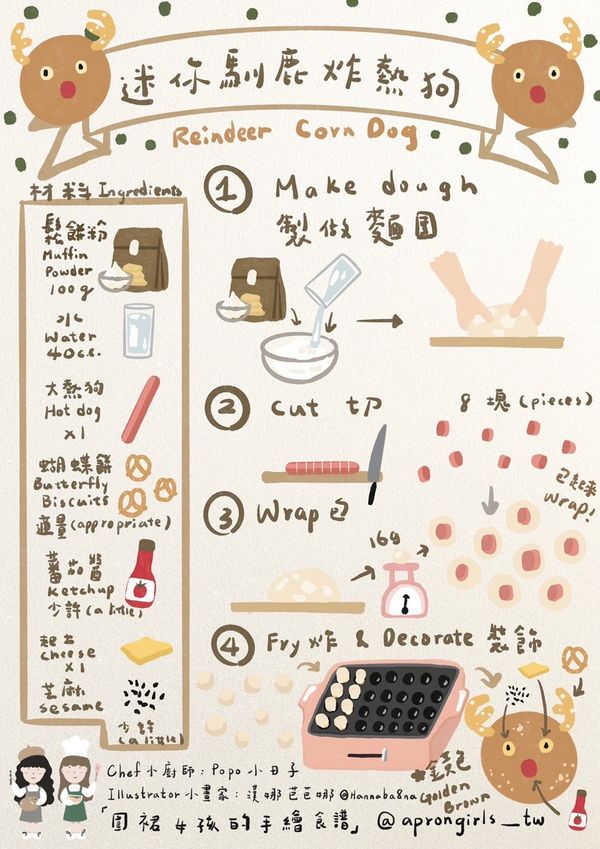 迷你馴鹿炸熱狗
Reindeer Corn Dog
材料 Ingredients
鬆餅粉
Muffin
Powder
100g
水
Water
40c.c.
大熱狗
Hot dog
x1
蝴蝶餅
Butterfly
Biscuits
適量(appropriate)
蕃茄醬
ketchup
少許(a little)
起士
cheese
x1
芝麻
sesame
少許
(a little)
① Make dough
製做麵團
② Cut 切
8 塊(pieces)
包起來
Wrap!
③ Wrap 包
16g
④ Fry 炸 & Decorate 裝飾
*金黃色
Golden
Brown
Chef 小廚師：Popo 小日子
Illustrator 小畫家：漢娜芭芭娜 @Hannaba8na
「圍裙女孩的手繪食譜」 @aprongirls_tw